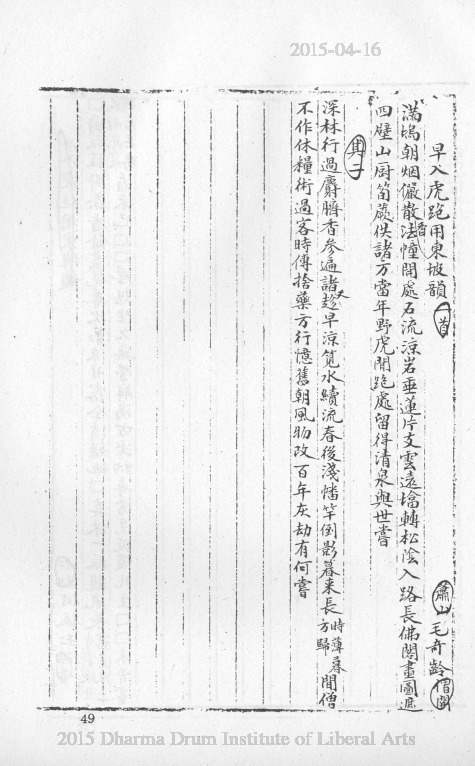 2015-04-16
早入虎跑用東坡韻 二首
蕭山 毛奇齡
滿塢朝烟儼散香法幢開處石流涼岩垂蓮片支雲遠墖轉松陰入路長佛閣畫圖遮
四壁山厨筍蕨供諸方當年野虎開跑處留得清泉與世嘗
其二
深林行過麝臍香參遍諸天趁早涼筧水續流春後淺幡竿倒影暮来長時薄暮方歸閒僧
不作休糧術過客時傳捨藥方行憶舊朝風物改百年灰劫有何嘗
49
2015 Dharma Drum Institute of Liberal Arts